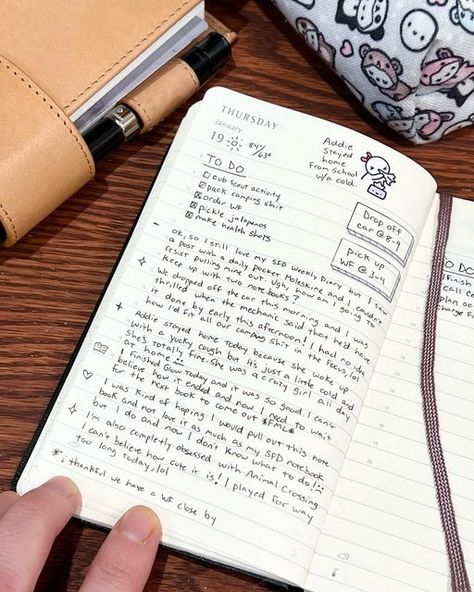 THURSDAY
January
19 84°/63°
Addie
Stayed
home
from school
w/a cold.
TO DO
cub scout activity
pack camping shit
order WF
pickle jalapenos
make health shots
Drop off
car @8-9
pick up
WF @ 3-4
ok, so I still love my SFD Weekly Diary but I saw
a post with a daily pocket Moleskine and I couldn't
resist pulling mine out. Ugh, how am I going to
keep up with two notebooks?
We dropped off the car this morning and I was
thrilled when the mechanic said that he'd have
it done by early this afternoon! I had no idea
how I'd fit all our camping shit in the Focus, lol
Addie stayed home today because she woke up
with a yucky cough but it's just a little cold and
she's totally fine. She was a crazy girl all day
at home!
I finished Glow today and it was so good. I can't
believe how it ended and now I need to wait
for the next book to come out *FML*
I was kind of hoping I would pull out this note
book and not love it as much as my SFD notebook
but I do and now I don't know what to do!
I'm also completly obsessed with Animal Crossing.
I can't believe how cute it is! I played for way
too long today, lol
*i thankful we have a WF close by
TO DO